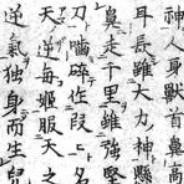 神人身獣首鼻高
耳長雖大力神懸
鼻走千里雖強堅
刀噛砕作段一名
天逆毎姫服天之
逆氣独身而生兒